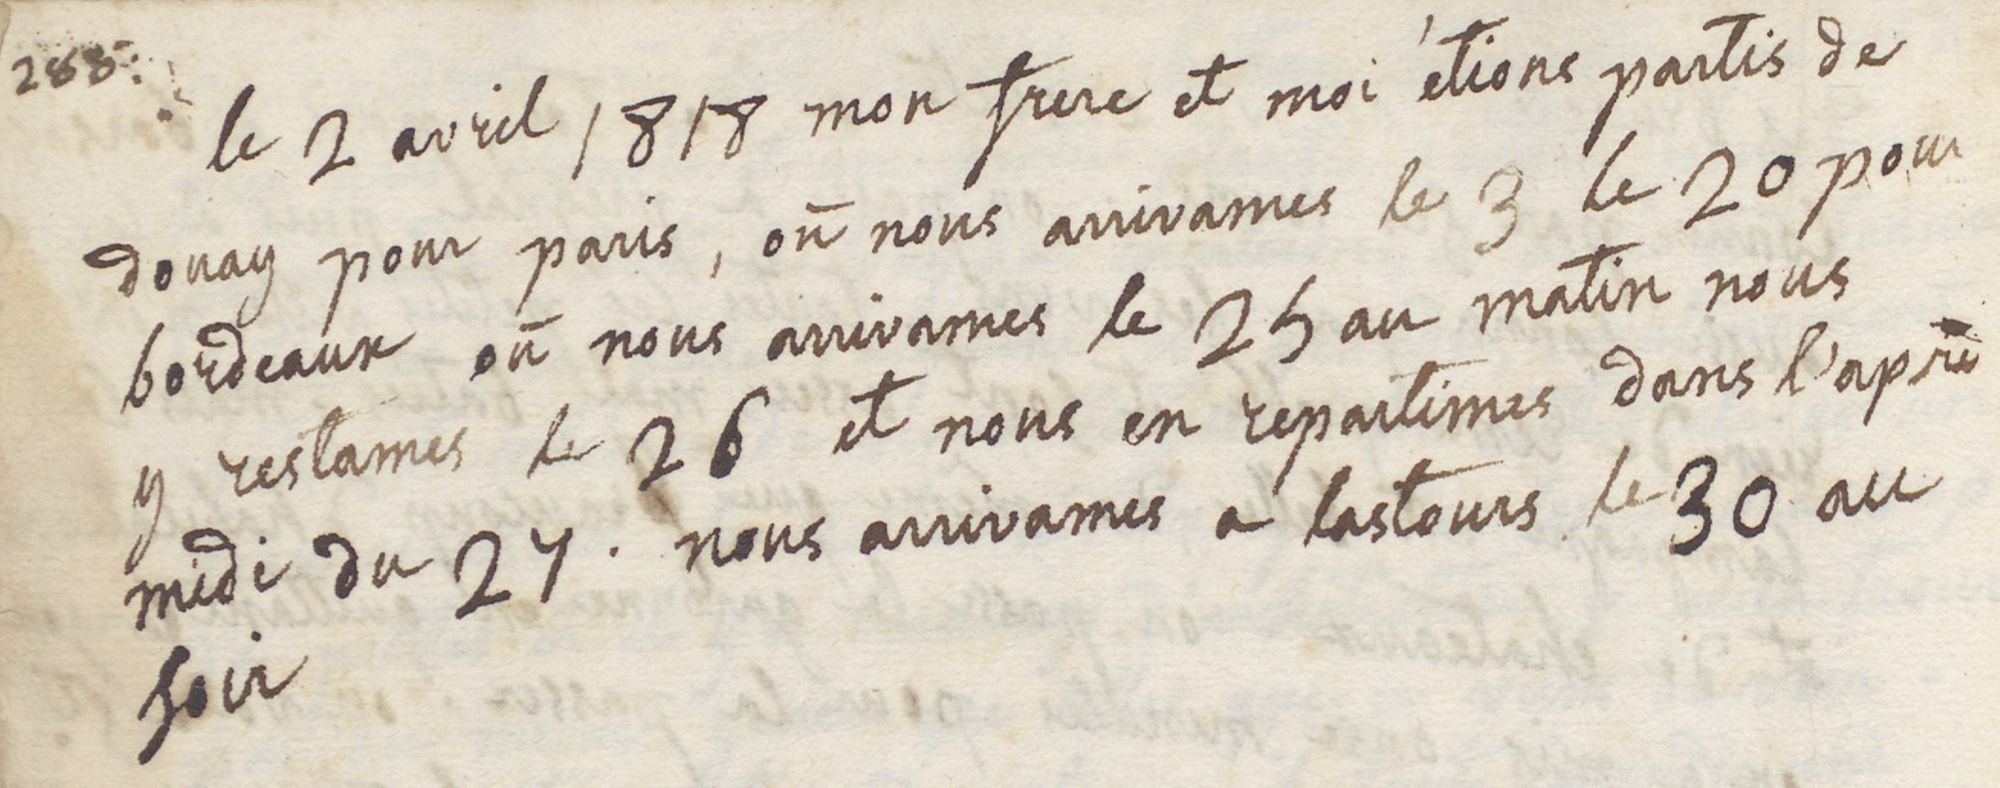 288.
le 2 avril 1818 mon frere et moi étions partis de
douay pour paris, où nous arrivames le 3 le 20 pour
bordeaux où nous arrivames le 25 au matin nous
y restames le 26 et nous en repartimes dans l'après
midi du 27. nous arrivames a lastours le 30 au
soir